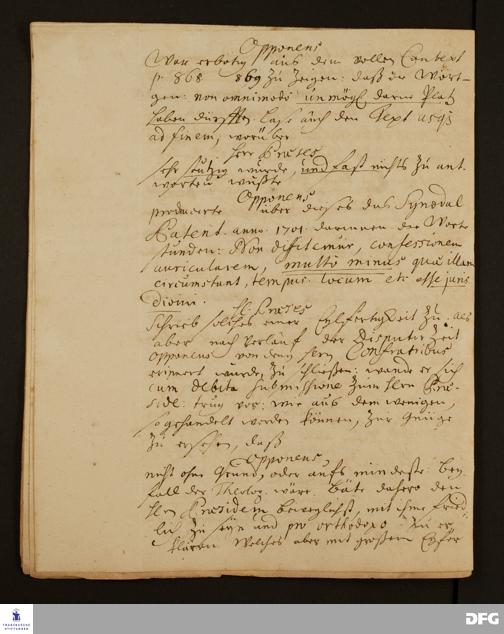 Opponens
War erbötig aus dem vollen Context
p 868 869 zu zeigen: daß die Wört-
gen: non omnimodò unmögl. darinn Platz
haben dürfften laße auch den Text usq3
ad finem, worüber
Herr Præses
sehr stutzig wurde, und fast nichts zu ant-
worten wußte
Opponens
producirte über dieses das Synodal
Patent. anno. 1701. darinnen die Worte
stunden: Non diffitemur, confessionem
auricularem, multò minus quæ illam
circumstant, tempus. locum etc esse juris
divini.
H: Præses
Schrieb solches einer Eylfertigkeit zu. als
aber nach Verlauf der Disputir Zeit
Opponens von denen Herrn Confratribus
erinnert wurde zu schließen: wande er sich
cum debita submissione zum Herrn Præ-
side: trug vor: wie aus dem wenigen,
so gehandelt werden können, zur Gnüge
zu ersehen, daß
Opponens
nicht ohne Grund, oder aufs mindeste bey-
fall der Theolog. wäre. Bäte dahero den
Hrn Præsidem beweglichst, mit ihme fried-
lich zu seyn und pro orthodoxo ihn er-
klären Welches aber mit großem Eyfer
TRANSHUMANCE
DFG